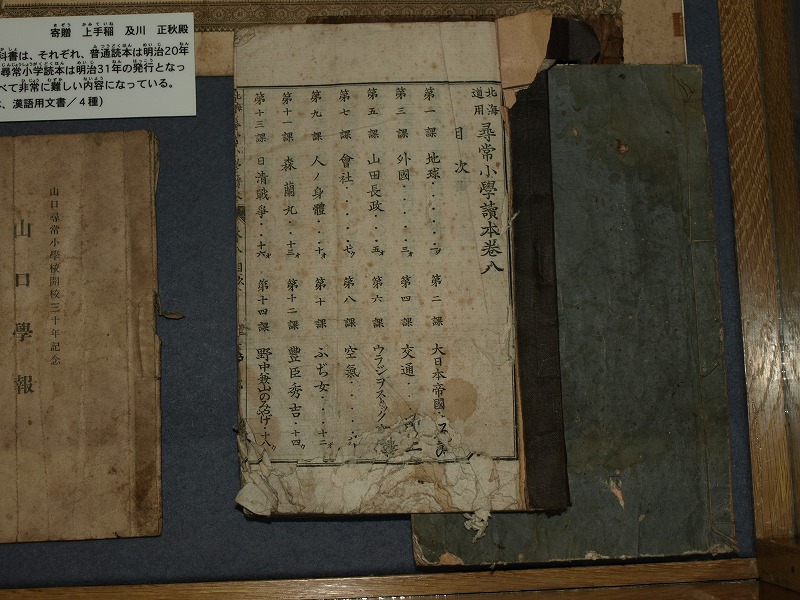 寄贈 上手稲 及川 正秋殿
科書は、それぞれ、普通読本は明治20年
尋常小学読本は明治31年の発行となっ
べて非常に難しい内容になっている。
、漢語用文書/4種)
北海道用 尋常小學讀本卷八
目次
第一課 地球・・・・一ウ
第二課 大日本帝國・
第三課 外國・・・・三オ
第四課 交通・・
第五課 山田長政・・五オ
第六課 ウラジヲストック
第七課 會社・・・・七ウ
第八課 空氣・・・
第九課 人ノ身體・・十オ
第十課 ふぢ女・・・十二オ
第十一課 森蘭丸・・十三オ
第十二課 豐臣秀吉・十四ウ
第十三課 日清戰爭・十六オ
第十四課 野中兼山のみやげ・十八ウ
山口尋常小學校開校三十年記念
山口學報